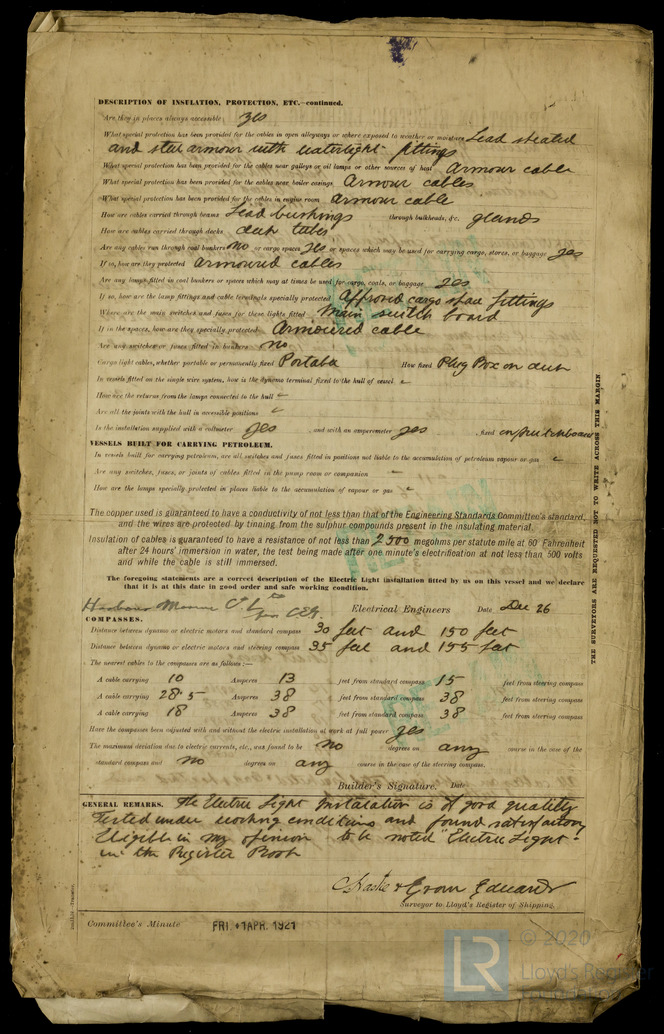 DESCRIPTION OF INSULATION, PROTECTION, ETC.—continued.
Are they in places always accessible yes
What special protection has been provided for the cables in open alleyways or where exposed to weather or moisture Lead sheated
and steel armour with watertight fittings
What special protection has been provided for the cables near galleys or oil lamps or other sources of heat Armour cable
What special protection has been provided for the cables near boiler casings Armour cables
What special protection has been provided for the cables in engine room armour cable
How are cables carried through beams Lead bushings through bulkheads, &c. glands
How are cables carried through decks deck tubes
Are any cables run through coal bunkers no or cargo spaces yes or spaces which may be used for carrying cargo, stores, or baggage yes
If so, how are they protected armoured cables
Are any lamps fitted in coal bunkers or spaces which may at times be used for cargo, coals, or baggage yes
If so, how are the lamp fittings and cable terminals specially protected Approved cargo space fittings
Where are the main switches and fuses for these lights fitted Main switch board
If in the spaces, how are they specially protected Armoured cable
Are any switches or fuses fitted in bunkers no
Cargo light cables, whether portable or permanently fixed Portable How fixed Plug Box on deck
In vessels fitted on the single wire system, how is the dynamo terminal fixed to the hull of vessel
How are the returns from the lamps connected to the hull
Are all the joints with the hull in accessible positions
Is the installation supplied with a voltmeter yes , and with an amperemeter yes , fixed on switchboard
VESSELS BUILT FOR CARRYING PETROLEUM.
In vessels built for carrying petroleum, are all switches and fuses fitted in positions not liable to the accumulation of petroleum vapour or gas
Are any switches, fuses, or joints of cables fitted in the pump room or companion
How are the lamps specially protected in places liable to the accumulation of vapour or gas
The copper used is guaranteed to have a conductivity of not less than that of the Engineering Standards Committee's standard,
and the wires are protected by tinning from the sulphur compounds present in the insulating material.
Insulation of cables is guaranteed to have a resistance of not less than 2500 megohms per statute mile at 60 Fahrenheit
after 24 hours' immersion in water, the test being made after one minute's electrification at not less than 500 volts
and while the cable is still immersed.
The foregoing statements are a correct description of the Electric Light installation fitted by us on this vessel and we declare
that it is at this date in good order and safe working condition.
Electrical Engineers Date Dec 26
COMPASSES.
Distance between dynamo or electric motors and standard compass 30 feet and 150 feet
Distance between dynamo or electric motors and steering compass 35 feet and 155 feet
The nearest cables to the compasses are as follows:—
A cable carrying 10 Amperes 13 feet from standard compass 15 feet from steering compass
A cable carrying 28.5 Amperes 38 feet from standard compass 38 feet from steering compass
A cable carrying 18 Amperes 38 feet from standard compass 38 feet from steering compass
Have the compasses been adjusted with and without the electric installation at work at full power yes
The maximum deviation due to electric currents, etc., was found to be no degrees on any course in the case of the
standard compass and no degrees on any course in the case of the steering compass.
Builder's Signature. Date
GENERAL REMARKS. The Electric Light Instalation is of good quality
Tested under working conditions and found satisfactory
Eligible in my opinion to be noted "Electric Light"
in the Register Book
Surveyor to Lloyd's Register of Shipping.
Committee's Minute FRI. 1 APR. 1921
THE SURVEYORS ARE REQUESTED NOT TO WRITE ACROSS THIS MARGIN
© 2020
Lloyd's Register
Foundation
LR